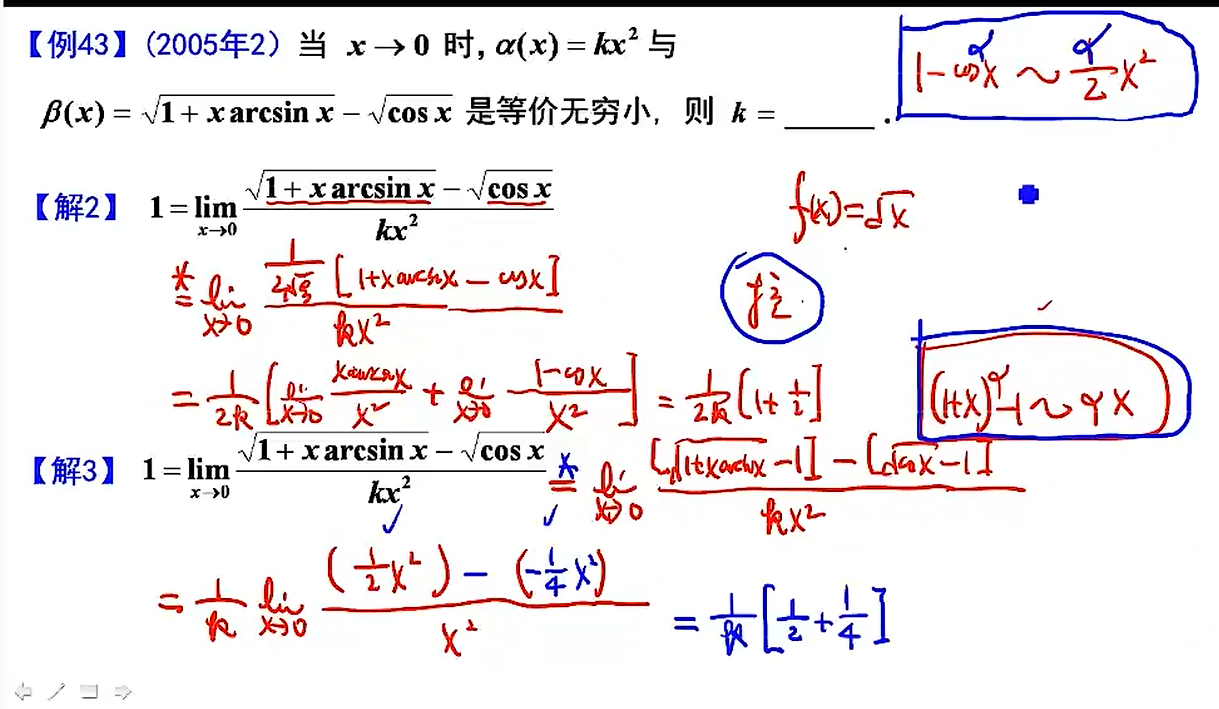 【例43】(2005年2) 当 x → 0 时, α(x) = kx² 与
β(x) = √(1 + x arcsin x) − √(cos x) 是等价无穷小, 则 k = ______ .
1 − cos^α x ~ α/2 x²
【解2】 1 = lim_{x→0} (√(1 + x arcsin x) − √(cos x)) / kx²
f(x) = √x
* = lim_{x→0} 1/(2√ξ) [1+x arcsin x − cos x] / kx²
= 1/2k [lim_{x→0} x arcsin x / x² + lim_{x→0} (1−cos x) / x²] = 1/2k [1 + 1/2]
(1+x)^α − 1 ~ αx
【解3】 1 = lim_{x→0} (√(1 + x arcsin x) − √(cos x)) / kx² * = lim_{x→0} ([√(1+x arcsin x) − 1] − [√(cos x) − 1]) / kx²
= 1/k lim_{x→0} ((1/2 x²) − (−1/4 x²)) / x² = 1/k [1/2 + 1/4]